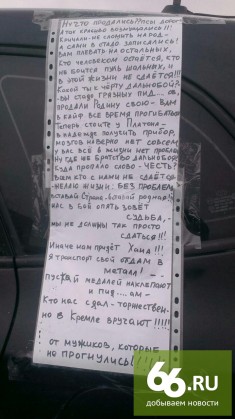 Ну что продались??Псы дорог
А так красиво возмущались!!!
Кричали- не сломить народ -
и сами в стадо записались!
Вам плевать на остальных,
Кто человеком остаётся, кто
не боится пуль шальных и
в этой жизни не сдаётся!!!
Какой ты к чёрту дальнобой?
вы стадо грязных пид... -ов,
продали Родину свою- Вам
в кайф все время прогибаться
Теперь стоите у Платона-
в надежде получить прибор,
мозгов наверно нет совсем
у вас всё в жизни нет проблем
Ну где же братство дальнобоя
куда пропало слово - ЧЕСТЬ?
всем кто с нами не сдаётся
желаю жизни БЕЗ проблем
вставай Страна, вставай родная!!
нас в бой опять зовёт
судьба,-
мы не должны так просто
сдаться!!!
Иначе нам придёт Хана!!!
Я транспорт свой отдам в
метала! --
пускай медалей наклепают
и пид.... ам -
Кто нас сдал - торжествен-
но в Кремле вручают!!!!!
от мужиков, которые
не прогнулись!!!!!
66.RU
добываем новости